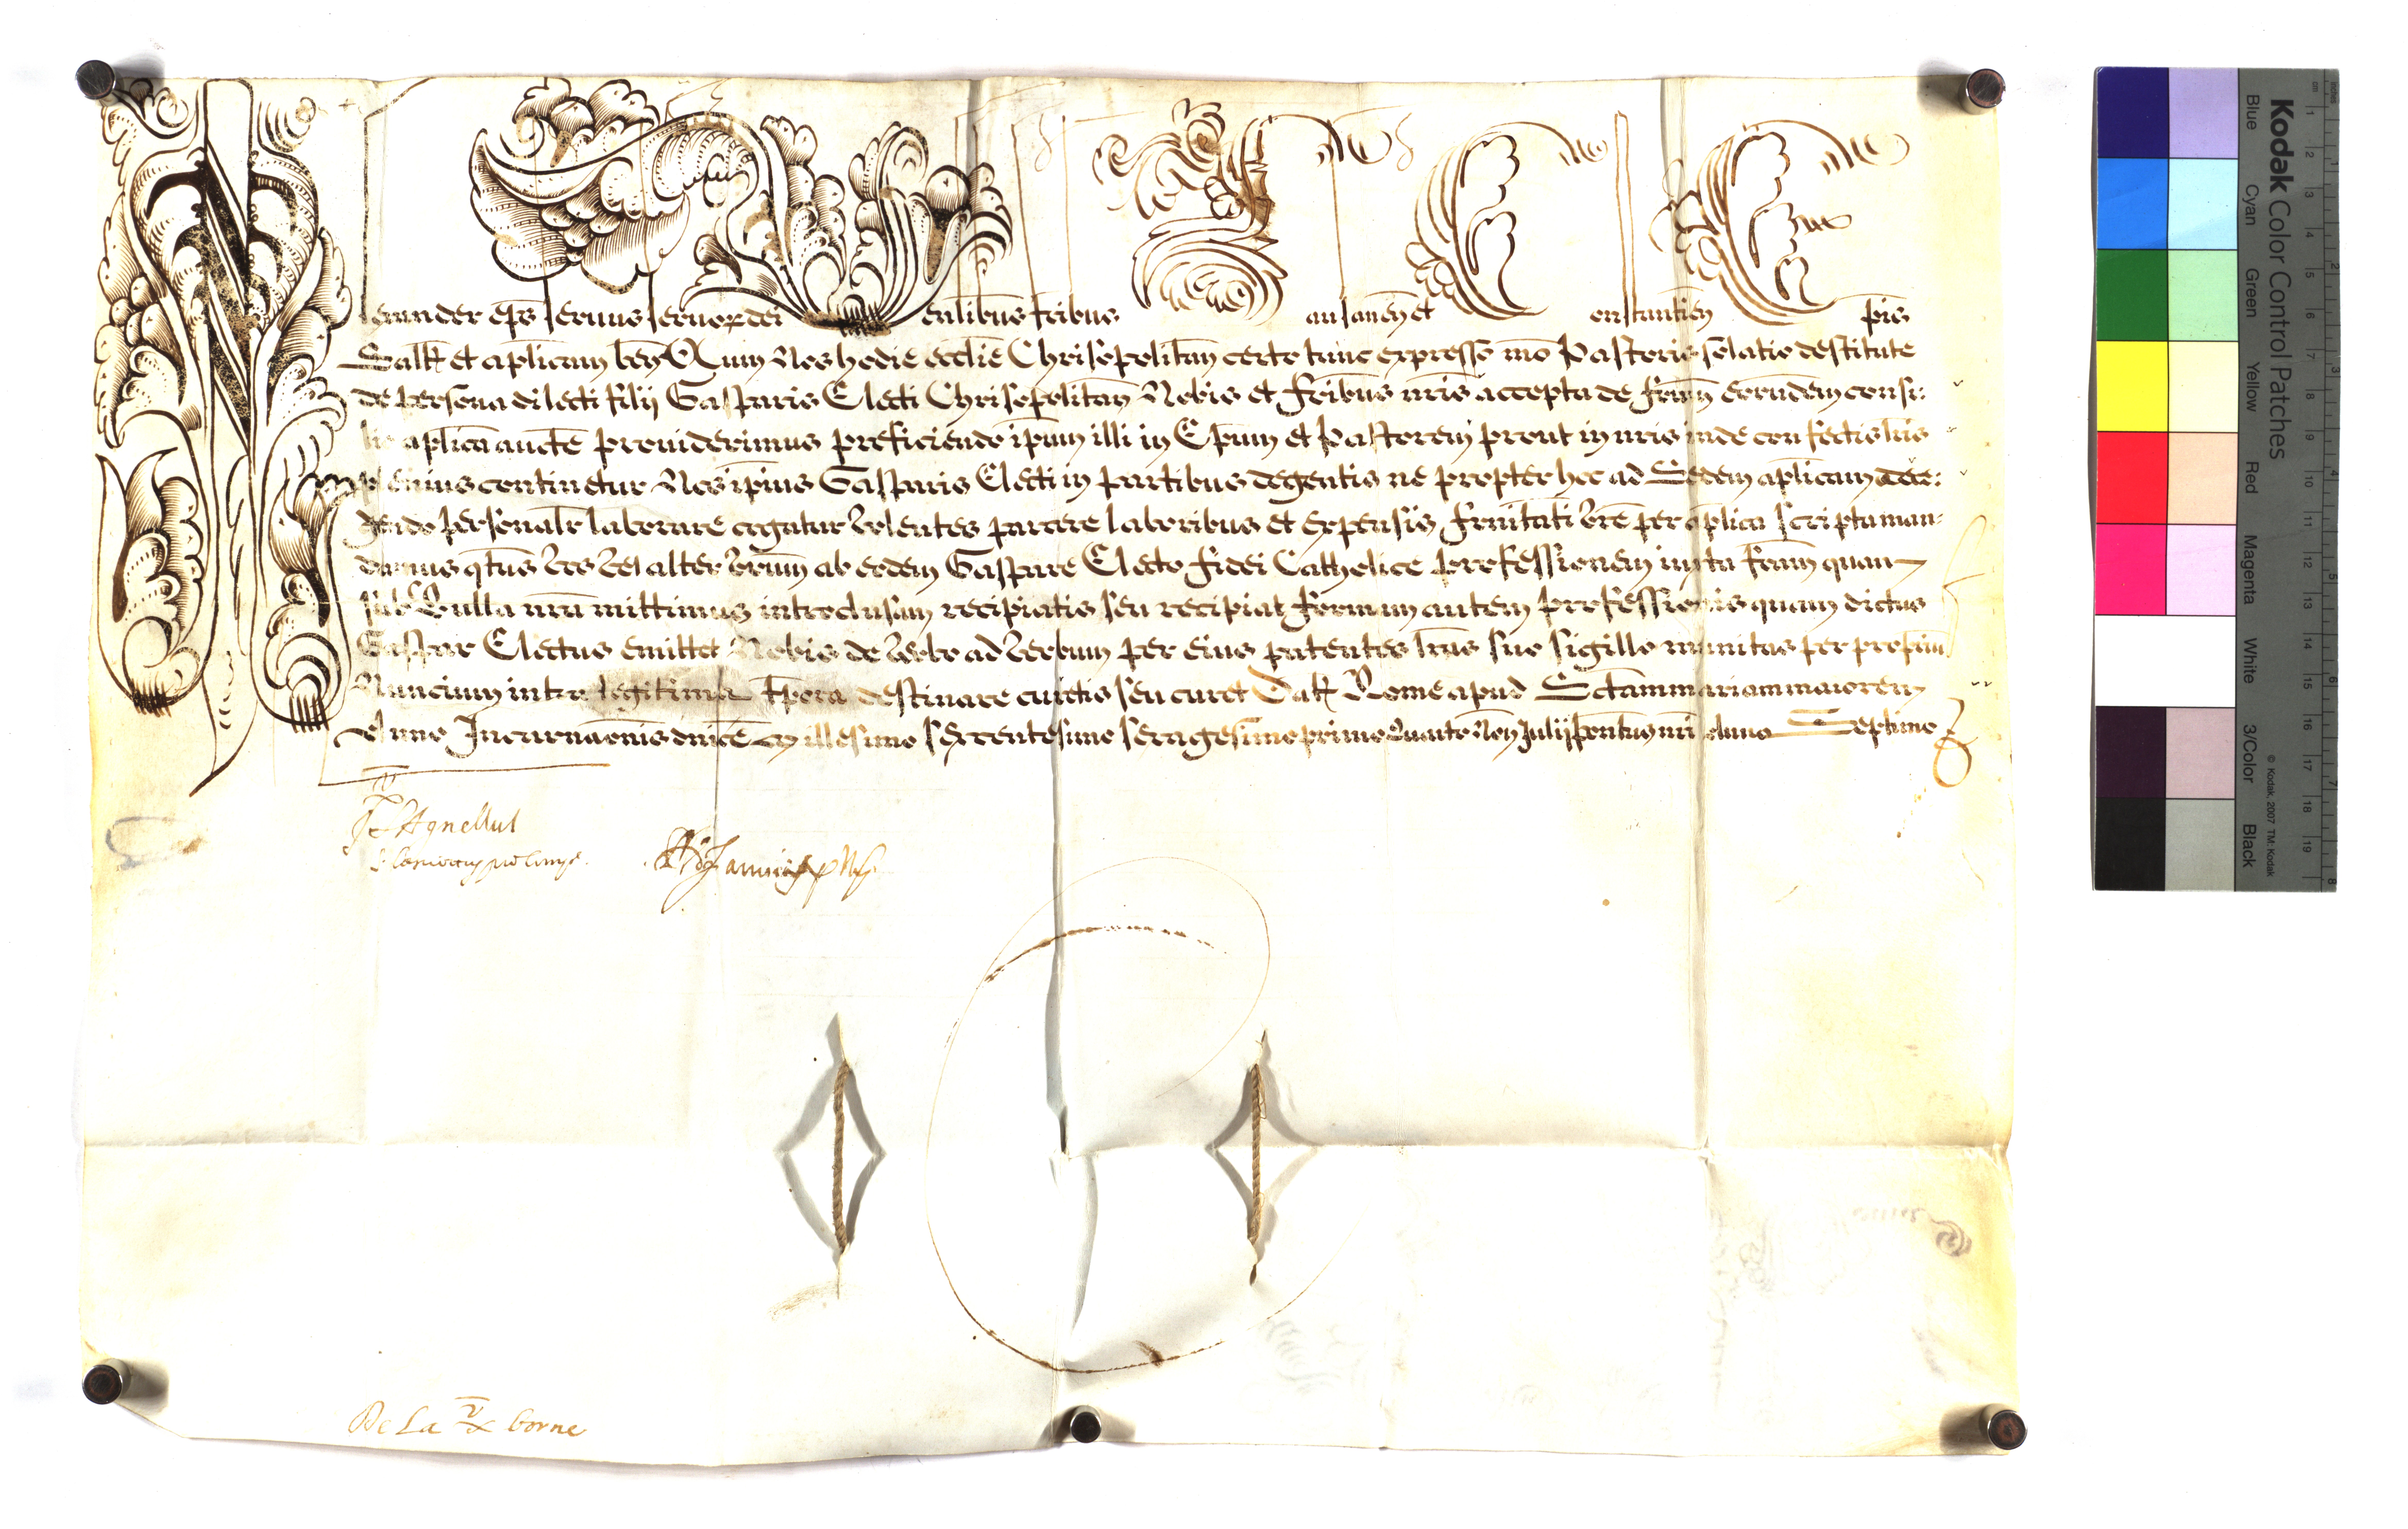 Alexander ep̄s seruus seruoꝝ dei Uen̄libus fr̄ibus Lausanen̄ et Constantien̄ Ep̄is
Saltē et ap̄licam ben̄ Cum Nos hodie eccl̄ie Chrisopolitan̄ certo tunc expresso mo Pastoris solatio destitute
de persona dilecti filij Gasparis Electi Chrisopolitan̄ Nobis et fr̄ibus nr̄is accepta de fr̄um eorundem consi:
lio ap̄lica aucte prouiderimus preficiendo ip̄um illi in Ep̄um et Pastorem prout in nr̄is inde confectis lr̄is
plenius continetur Nos ip̄ius Gasparis Electi in partibus degentis ne propter hoc ad Sedem ap̄licam acce:
dendo personalr̄ laborare cogatur volentes parcere laboribus et expensis fr̄nitati vr̄e per ap̄lica scripta man:
damus q̄tus vos vel alter vr̄um ab eodem Gaspare Electo fidei Catholice professionem iuxta formā quam
sub Bulla nr̄a mittimus introclusam recipiatis seu recipiat formam autem professionis quam dictus
Gaspar Electus emittet Nobis de verbo ad verbum per eius patentes lr̄as suo sigillo munitas per propriū
Nuncium infra legitima tp̄ora destinare curetis seu curet Datē Rome apud Sctam mariam maiorem
Anno Incarnaōnis dnīce Millesimo sexcentesimo sexagesimo primo Quarto Non̄ Julij Pontus nr̄i Anno Septimo
Agnellus
De La borne
Kodak Color Control Patches
Blue Cyan Green Yellow Red Magenta White 3/Color Black
© Kodak, 2007 TM: Kodak
inches 1 2 3 4 5 6 7 8
cm 1 2 3 4 5 6 7 8 9 10 11 12 13 14 15 16 17 18 19